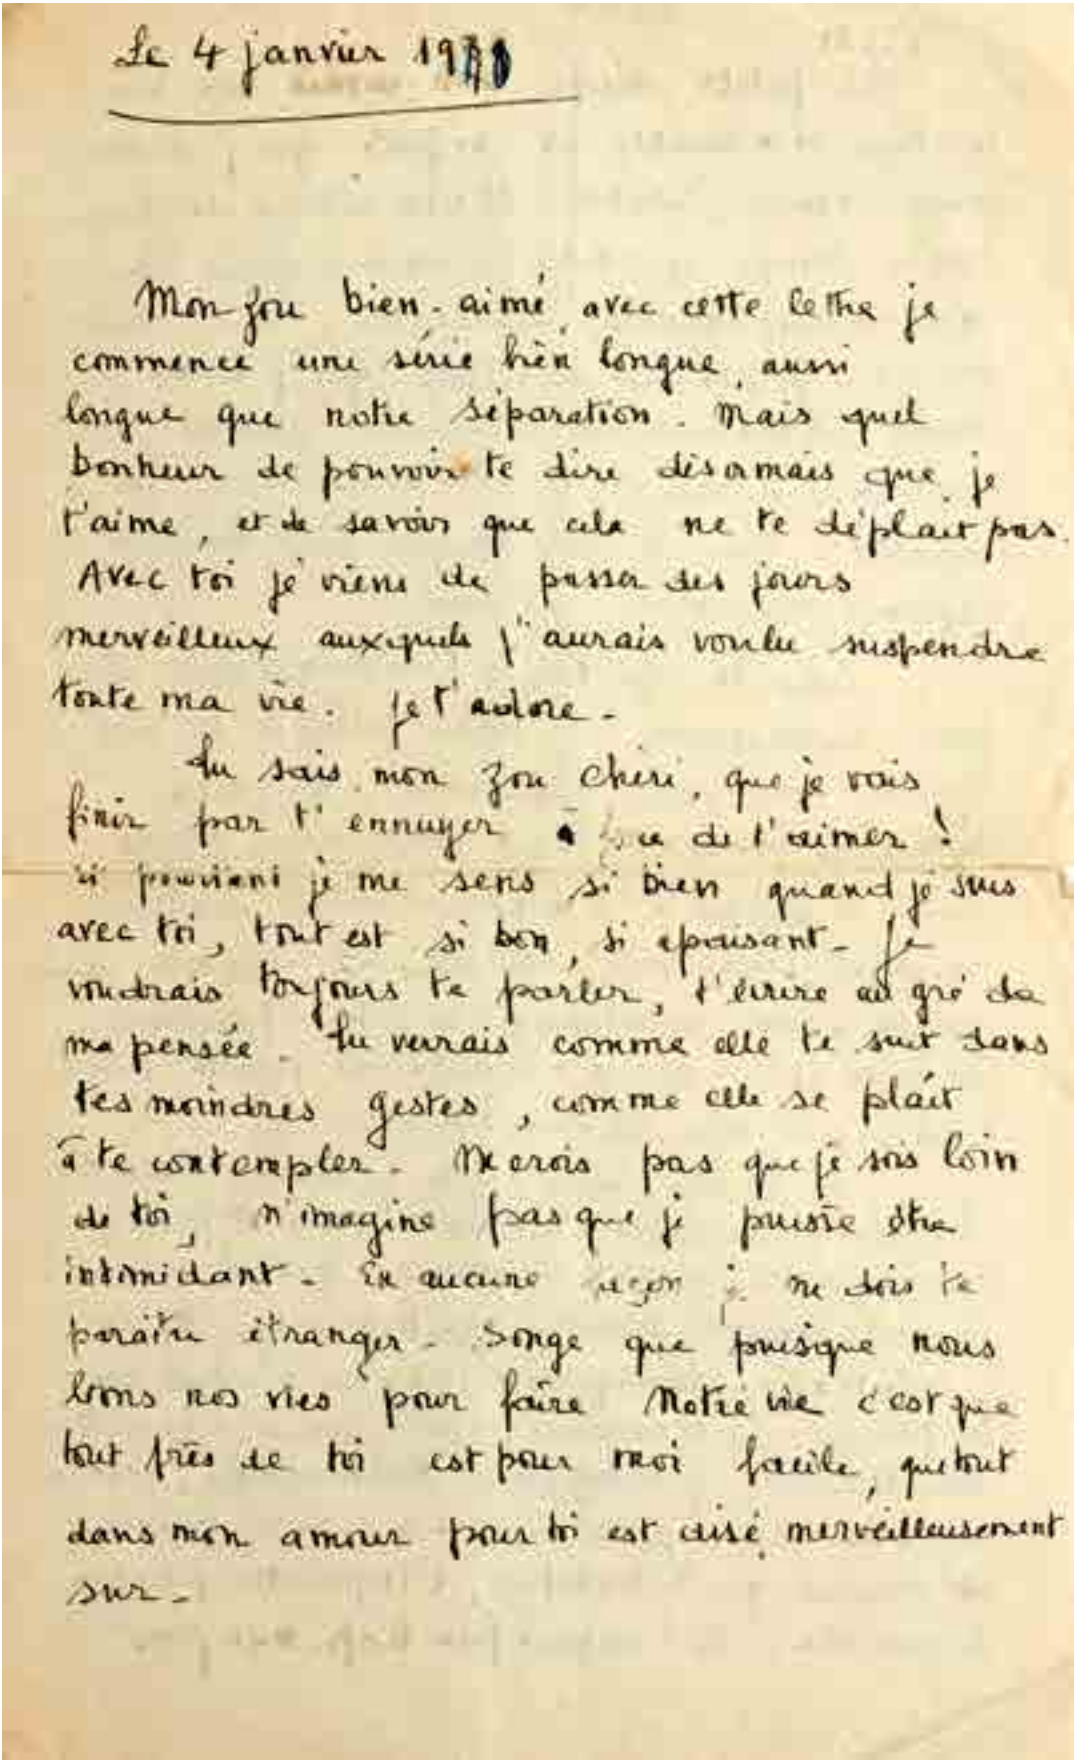 Le 4 janvier 19
Mon Zou bien-aimé, avec cette lettre je
commence une série bien longue, aussi
longue que notre séparation. Mais quel
bonheur de pouvoir te dire désormais que je
t'aime, et de savoir que cela ne te déplait pas.
Avec toi je viens de passer des jours
merveilleux auxquels j'aurais voulu suspendre
toute ma vie. Je t'adore -
Tu sais, mon Zou chéri, que je vais
finir par t'ennuyer à de t'aimer !
je me sens si bien quand je suis
avec toi, tout est si bon, si apaisant - Je
voudrais toujours te parler, t'écrire au gré de
ma pensée. Tu verrais comme elle te suit dans
tes moindres gestes, comme elle se plaît
à te contempler. Ne crois pas que je sois loin
de toi, n'imagine pas que je puisse être
intimidant - En aucune façon je ne dois te
paraître étranger - Songe que puisque nous
lions nos vies pour faire Notre vie c'est que
tout près de toi est pour moi facile, que tout
dans mon amour pour toi est aisé, merveilleusement
sur -